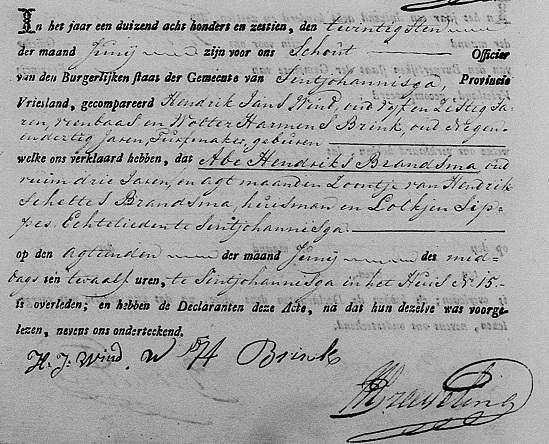 In het jaar een duizend acht honderd en zestien, den twintigsten
der maand Junij zijn voor ons Schout Officier
van den Burgerlijken staat der Gemeente van Sintjohannisga, Provincie
Vriesland, gecompareerd Hendrik Jans Wind, oud Vijf en Zestig Ja-
ren, veenbaas en Wolter Harmens Brink, oud Negen
endertig Jaren, Turfmaker, geburen
welke ons verklaard hebben, dat Abe Hendriks Brandsma, oud
ruim drie Jaren, en agt maanden Zoontje van Hendrik
Scheltes Brandsma, huisman en Lolkjen Sip-
pes. Echtelieden te Sintjohannisga
op den agtienden der maand Junij des mid-
dags ten twaalf uren, te Sintjohannisga in het Huis No 15
is overleden; en hebben de Declaranten deze Acte, na dat hun dezelve was voorge-
lezen, nevens ons onderteekend.
H. J. Wind. W H Brink